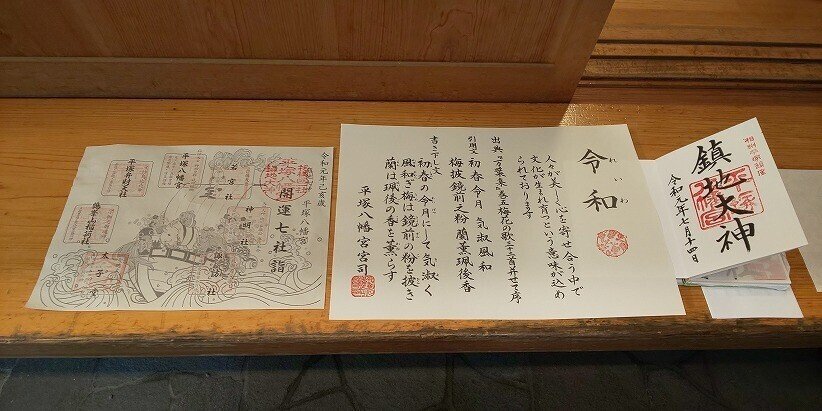 令和元年己亥歳
平塚八幡宮
開運七社詣
若宮社
神明社
諏訪社
平塚八幡宮
平塚弁財天社
令和
れいわ
人々が美しく心を寄せ合う中で
文化が生まれ育つという意味が込め
られております
出典 『万葉集』巻五梅花の歌三十二首并せて序
引用文 初春令月 気淑風和
梅披鏡前之粉 蘭薫珮後香
書き下し文
初春の令月にして 気淑く
風和ぎ 梅は鏡前の粉を披き
蘭は珮後の香を薫らす
平塚八幡宮宮司
鎮地大神
令和元年七月十四日